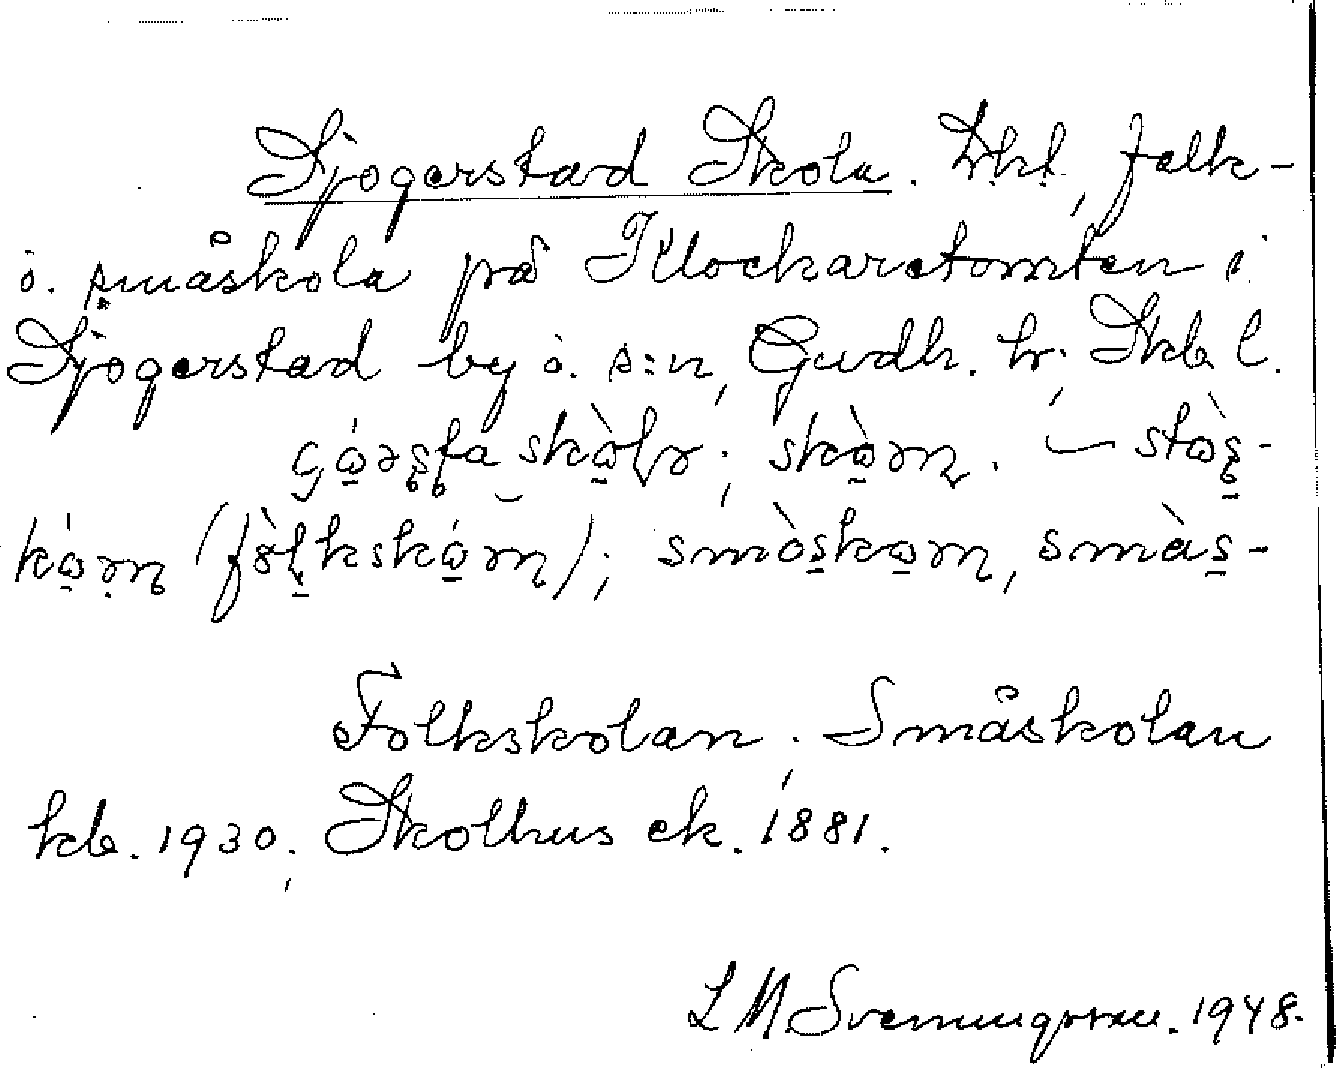 Sjogerstad Skola. Lhl, folk-
o. småskola på Klockaretomten i
Sjogerstad by o. s:n, Gudh. hr; Skb. l.
skòlɤ; skòrn. – stòs-
kórn (fòlkskórn); smòskorn, smàs-
Folkskolan; Småskolan
kb. 1930; Skolhus ek. 1881.
L M Svenungsson. 1948.